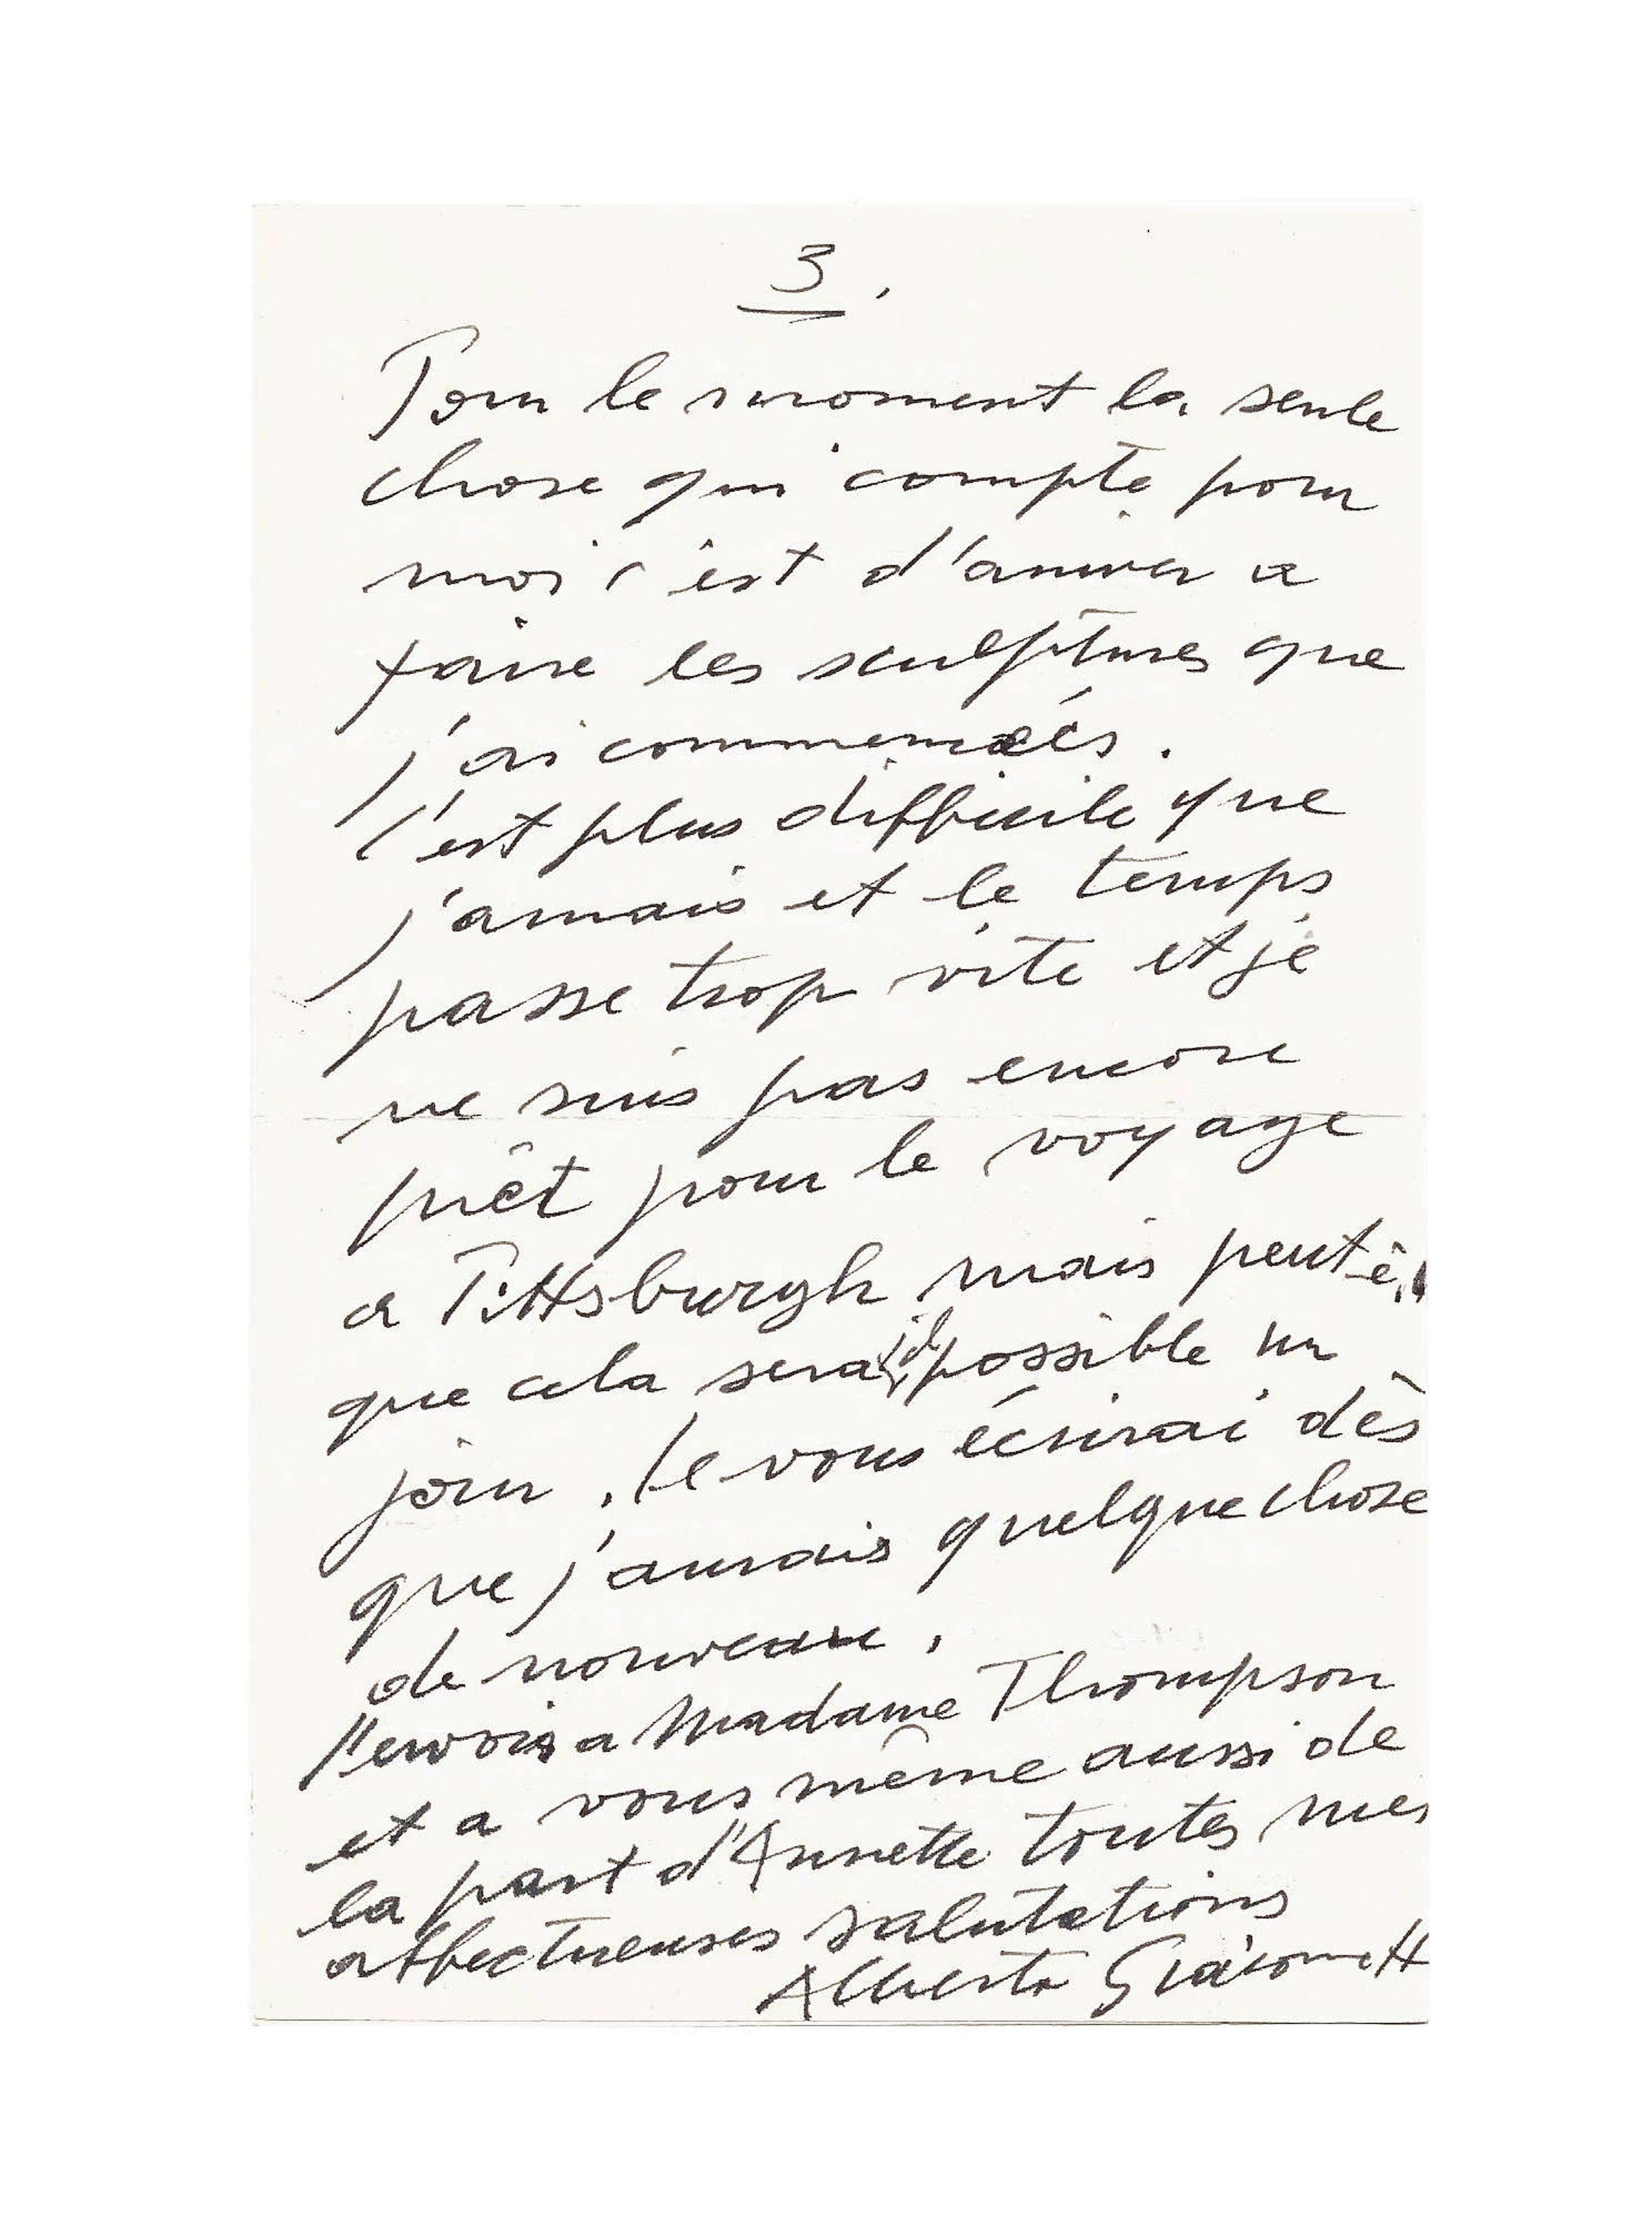 3.
Pour le moment la seule
chose qui compte pour
moi c'est d'arriver a
faire les sculptures que
j'ai commencées.
C'est plus difficile que
j'amais et le temps
passe trop vite et je
ne suis pas encore
prêt pour le voyage
a Pittsburgh mais peut-ê
que cela sera possible un
jour. Je vous écrirai dès
que j'aurais quelque chose
de nouveau.
J'envois a Madame Thompson
et a vous même aussi de
la part d'Annette toutes mes
affectueuses salutations
Alberto Giacometti